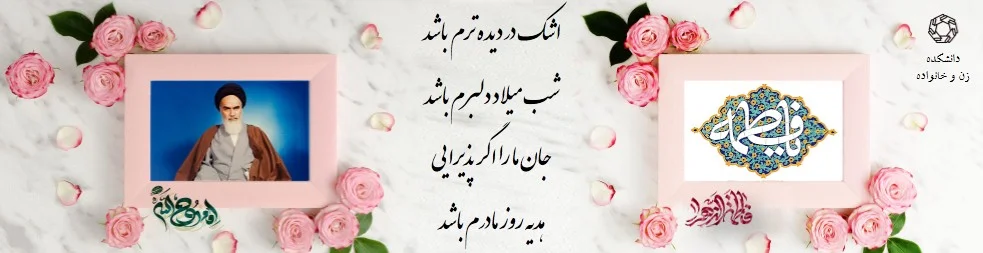 دانشکده
زن و خانواده
یا فاطمه
فاطمة الزهراء
اشک در دیده ترم باشد
شب میلاد دلبرم باشد
جان ما را اگر پذیرایی
هدیه روز مادرم باشد
امام روح الله